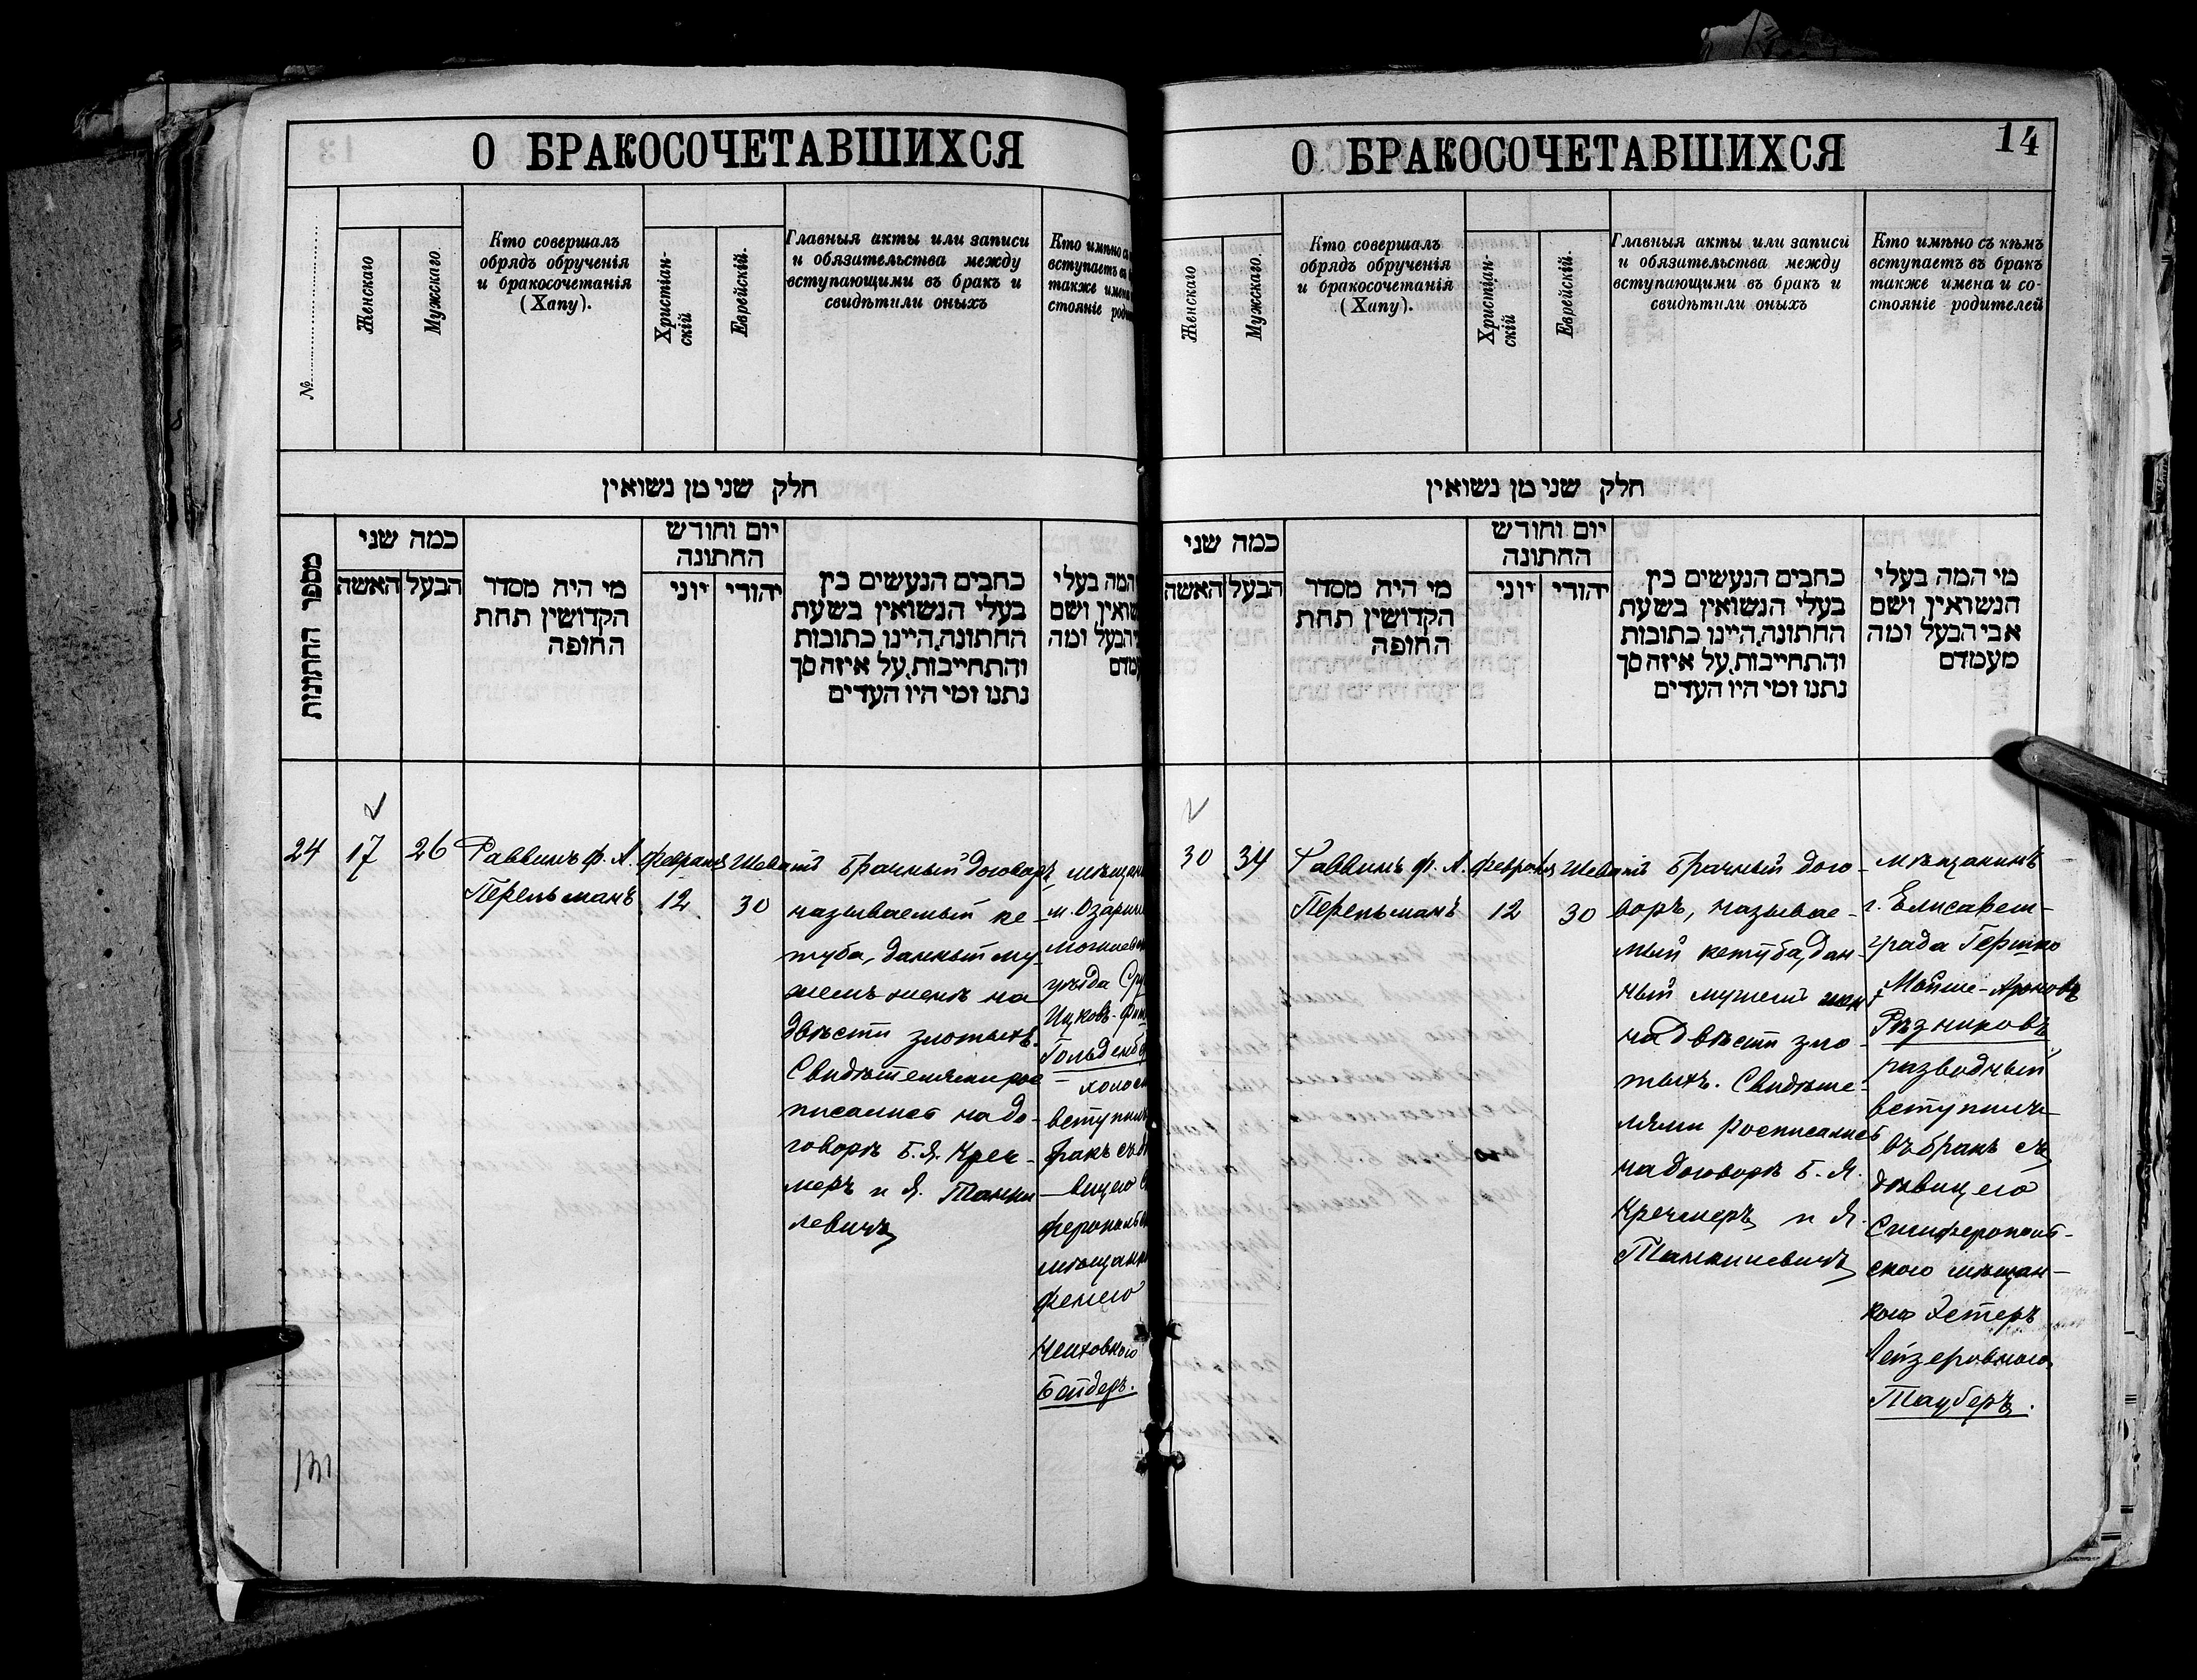 О БРАКОСОЧЕТАВШИХСЯ
№
Женскаго
Мужскаго
Кто совершалъ
обрядъ обрученія
и бракосочетанія
(Хапу).
Христіан-
скій
Еврейскій.
Главныя акты или записи
и обязательства между
вступающими въ бракъ и
свидѣтили оныхъ
Кто имѣно
вступаетъ
также имена
стояніе
חלק שני מן נשואין
מספר החתונות
כמה שני
האשה
הבעל
מי היה מסדר
הקדושין תחת
החופה
יום וחודש
החתונה
יוני
יהודי
כתבים הנעשים בין
בעלי הנשואין בשעת
החתונה, היינו כתובות
והתחייבות, על איזה סך
נתנו ומי היו העדים
המה בעלי
ושם
הבעל ומה
24
17
26
Раввинъ Ф. А.
Перельманъ
Февраля
12
Шеватъ
30
Брачный договоръ,
называемый ке-
туба, данный му-
жемъ женѣ на
двѣсти злотыхъ.
Свидѣтелями рос
писались на до-
говорѣ Б. Я. Креч-
меръ и Я. Танки
левичъ
м. Озарин
уѣзда
Ицковъ
вступилъ
бракъ съ
вицею
Бейдеръ.
131
О БРАКОСОЧЕТАВШИХСЯ
14
Женскаго
Мужскаго.
Кто совершалъ
обрядъ обрученія
и бракосочетанія
(Хапу).
Христіан-
скій
Еврейскій.
Главныя акты или записи
и обязательства между
вступающими въ бракъ и
свидѣтили оныхъ
Кто имѣно съ кѣмъ
вступаетъ въ бракъ
также имена и со-
стояніе родителей
חלק שני מן נשואין
כמה שני
האשה
הבעל
מי היה מסדר
הקדושין תחת
החופה
יום וחודש
החתונה
יוני
יהודי
כתבים הנעשים בין
בעלי הנשואין בשעת
החתונה, היינו כתובות
והתחייבות, על איזה סך
נתנו ומי היו העדים
מי המה בעלי
הנשואין ושם
אבי הבעל ומה
מעמדם
30
34
Раввинъ Ф. А.
Перельманъ
Февраля
12
Шеватъ
30
Брачный дого-
воръ, называе-
мый кетуба, дан-
ный мужемъ
на двѣсти зло-
тыхъ. Свидѣте-
лями росписались
на договорѣ Б. Я.
Кречмеръ и Я.
Танкилевичъ
мѣщанинъ
г. Елисавет-
града Гершко
Мойше-Ароновъ
Рѣзниковъ
разводный
вступилъ
въ бракъ съ
дѣвицею
Симферополь-
скою мѣщан-
кою Эстеръ
Лейзеровною
Тауберъ.